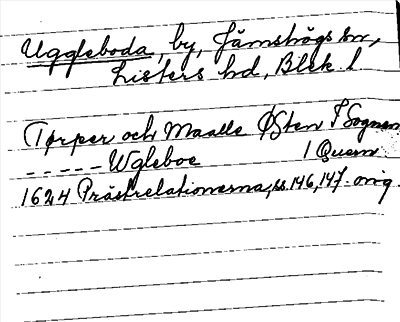 Uggleboda, by, Jämshögs sn,
Listers hd, Blek. l
Torper och Maalle Østen I Sognen
- - - - - Wgleboe 1 Quern.
1624 Prästrelationerna, ss. 146, 147. orig.